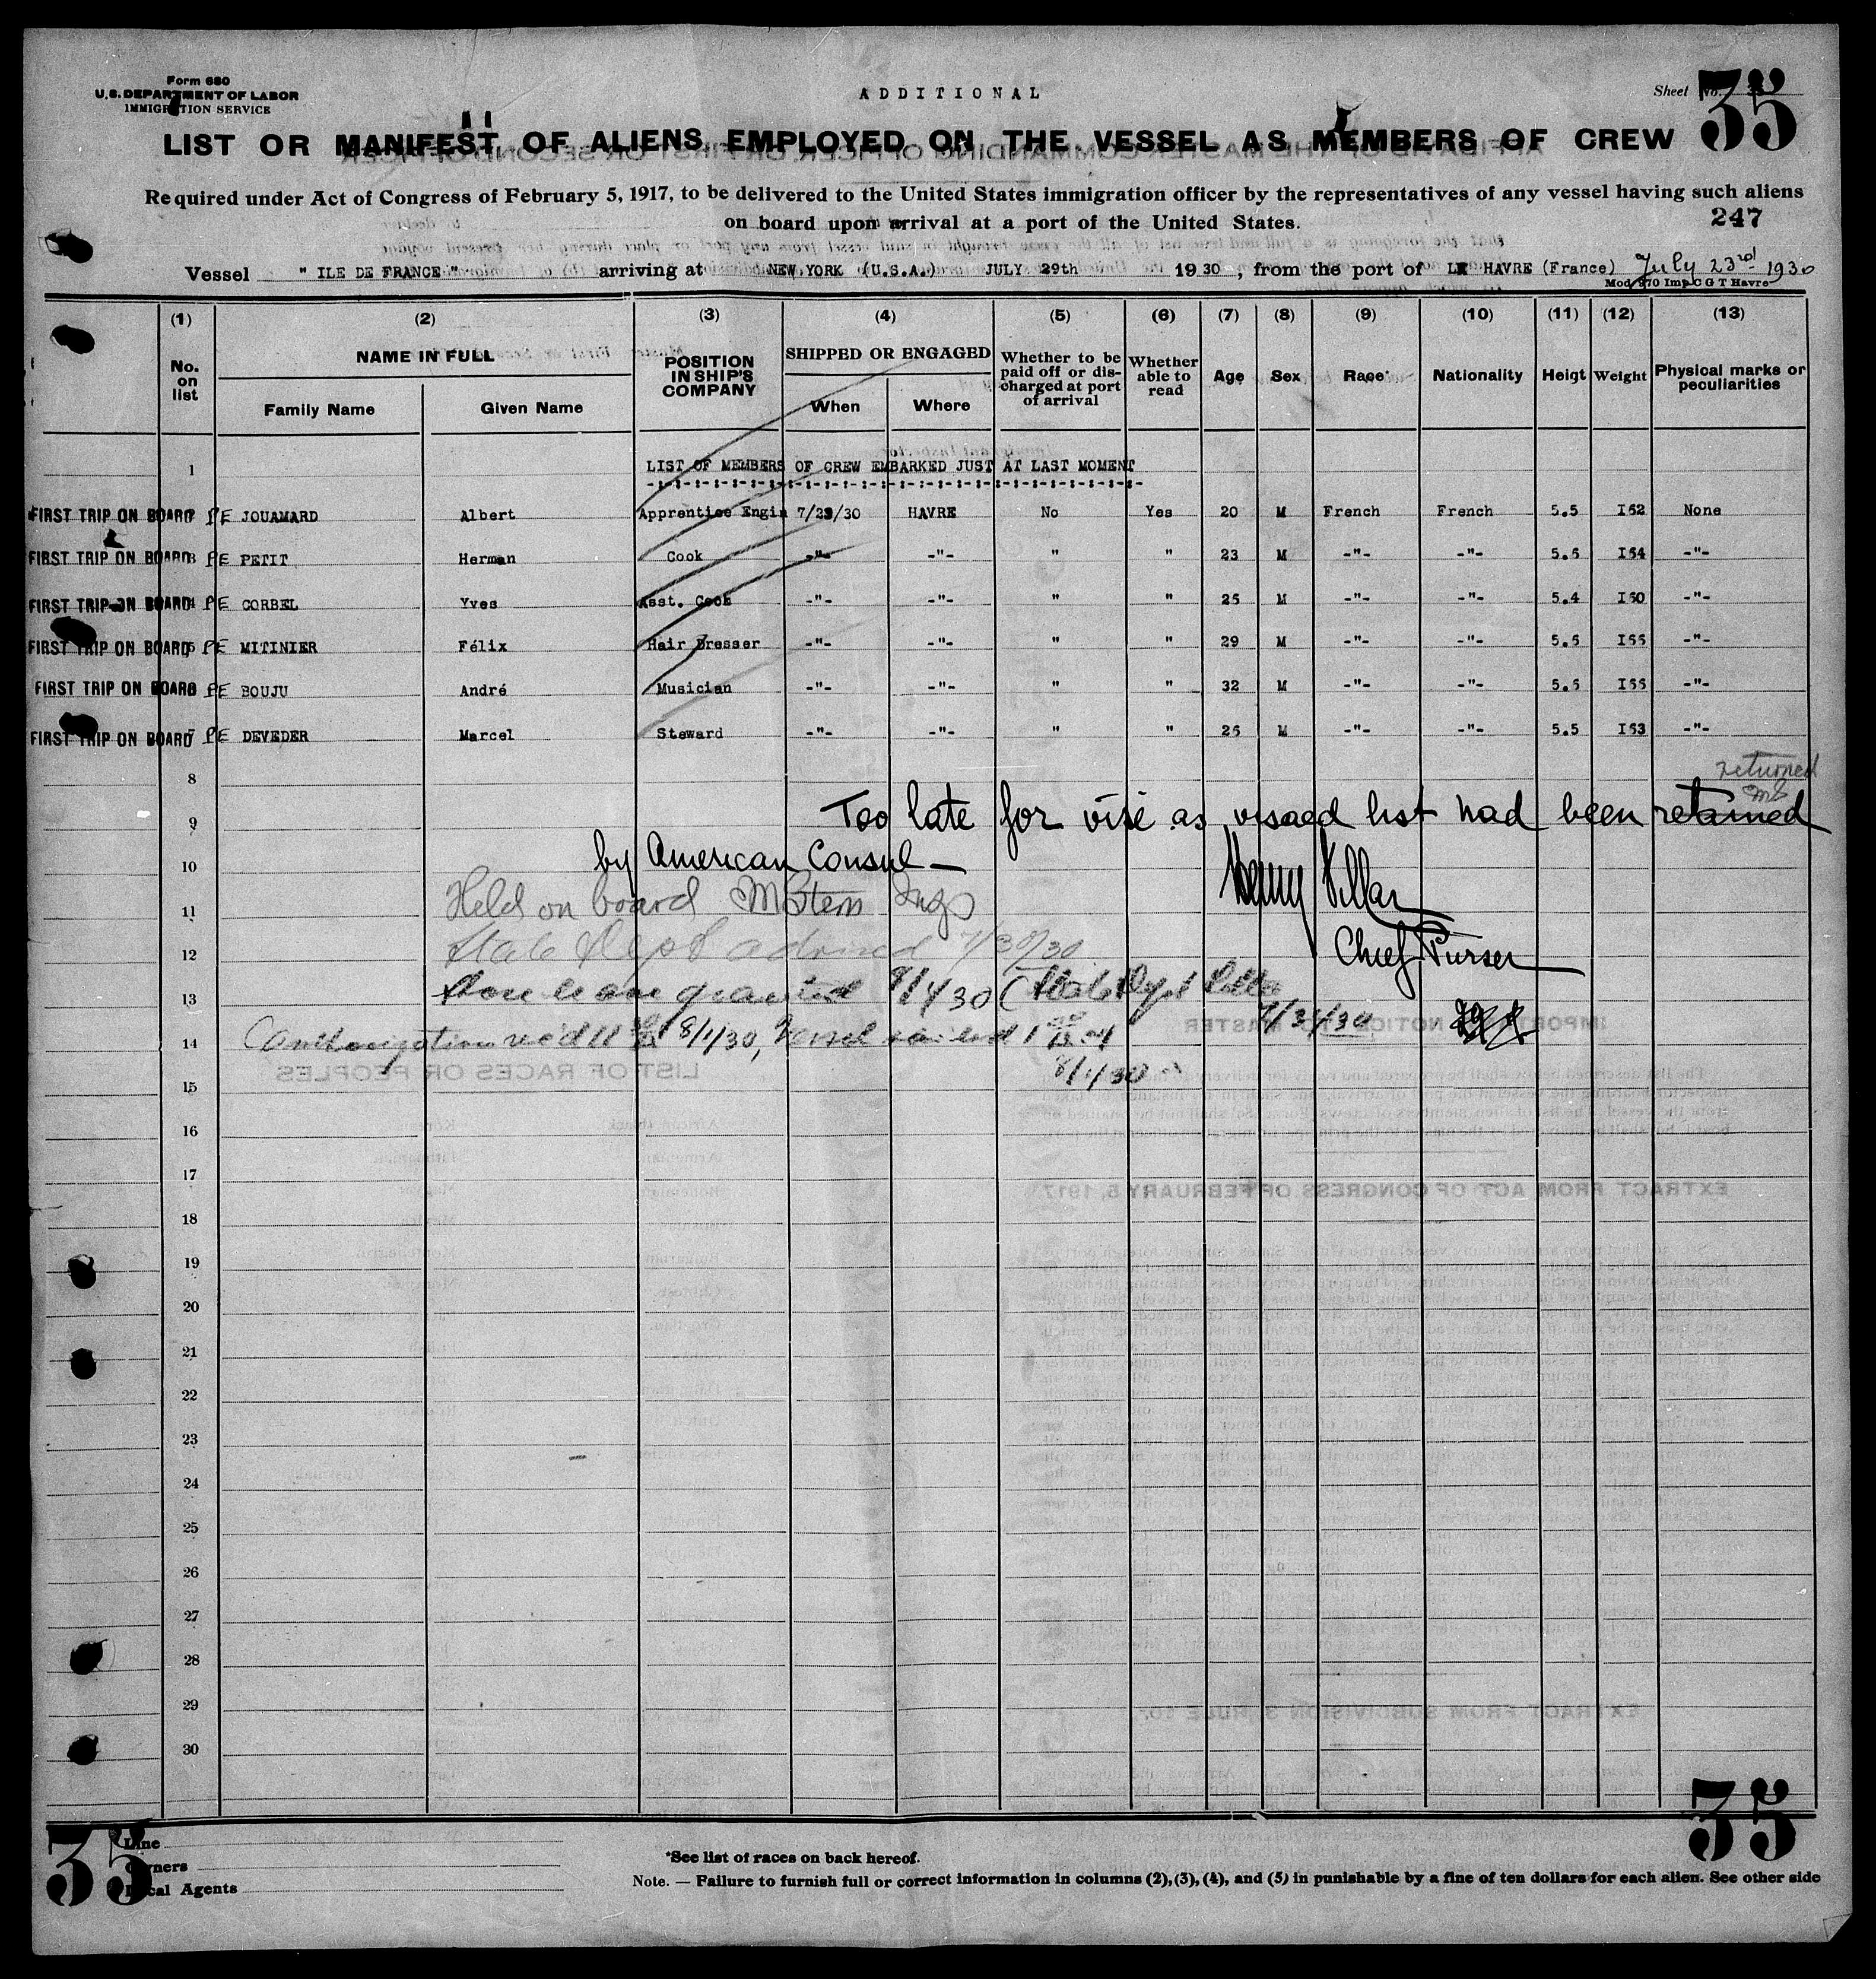 Form 680
U.S. DEPARTMENT OF LABOR
IMMIGRATION SERVICE
ADDITIONAL
Sheet No. 35
LIST OR MANIFEST OF ALIENS EMPLOYED ON THE VESSEL AS MEMBERS OF CREW
Required under Act of Congress of February 5, 1917, to be delivered to the United States immigration officer by the representatives of any vessel having such aliens
on board upon arrival at a port of the United States.
247
Vessel " ILE DE FRANCE " arriving at NEW YORK (U.S.A.) JULY 29th 1930, from the port of LE HAVRE (France) July 23rd 1930
Mod 970 Imp C G T Havre
(1) (2) (3) (4) (5) (6) (7) (8) (9) (10) (11) (12) (13)
No. on list NAME IN FULL Family Name Given Name POSITION IN SHIP'S COMPANY SHIPPED OR ENGAGED When Where Whether to be paid off or discharged at port of arrival Whether able to read Age Sex Race* Nationality Heigt Weight Physical marks or peculiarities
1 LIST OF MEMBERS OF CREW EMBARKED JUST AT LAST MOMENT
FIRST TRIP ON BOARD PE JOUAMARD Albert Apprentice Engin 7/23/30 HAVRE No Yes 20 M French French 5.5 I52 None
FIRST TRIP ON BOARD 3 PE PETIT Herman Cook -"- -"- " " 23 M -"- -"- 5.5 I54 -"-
FIRST TRIP ON BOARD 4 PE CORBEL Yves Asst. Cook -"- -"- " " 25 M -"- -"- 5.4 I50 -"-
FIRST TRIP ON BOARD 5 PE MITINIER Félix Hair Dresser -"- -"- " " 29 M -"- -"- 5.5 I55 -"-
FIRST TRIP ON BOARD 6 PE BOUJU André Musician -"- -"- " " 32 M -"- -"- 5.5 I55 -"-
FIRST TRIP ON BOARD 7 PE DEVEDER Marcel Steward -"- -"- " " 25 M -"- -"- 5.5 I53 -"-
8 returned
9 Too late for visé as visaed list had been retained
10 by American Consul — Henry Villar
11 Held on board M Stern Insp
12 State Dept advised 7/30/30 Chief Purser
13 Shore leave granted 8/1/30 (State Dept
14 Authorization rec'd 11 8/1/30, Vessel sailed 1 7/31/30
15 8/1/30
16
17
18
19
20
21
22
23
24
25
26
27
28
29
30
35
35
Line
Owners
Local Agents
*See list of races on back hereof.
Note. — Failure to furnish full or correct information in columns (2), (3), (4), and (5) in punishable by a fine of ten dollars for each alien. See other side